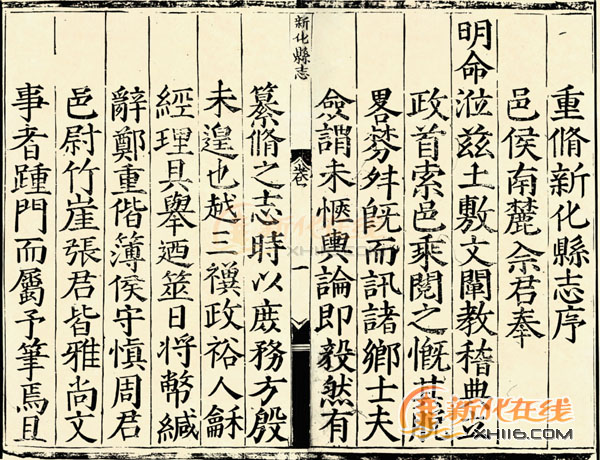 重脩新化縣志序
邑侯南麓余君奉
明命涖兹土敷文闡教稽典
政首索邑乘閱之慨其
畧棼舛旣而訊諸鄉士夫
僉謂未愜輿論即毅然有
新化縣志
卷
一
纂脩之志時以庶務方殷
未遑也越三禩政裕人龢
經理具舉迺筮日將幣緘
辭鄭重偕簿侯守愼周君
邑尉竹崖張君皆雅尚文
事者踵門而屬予筆焉且
新化在线
XH116.COM